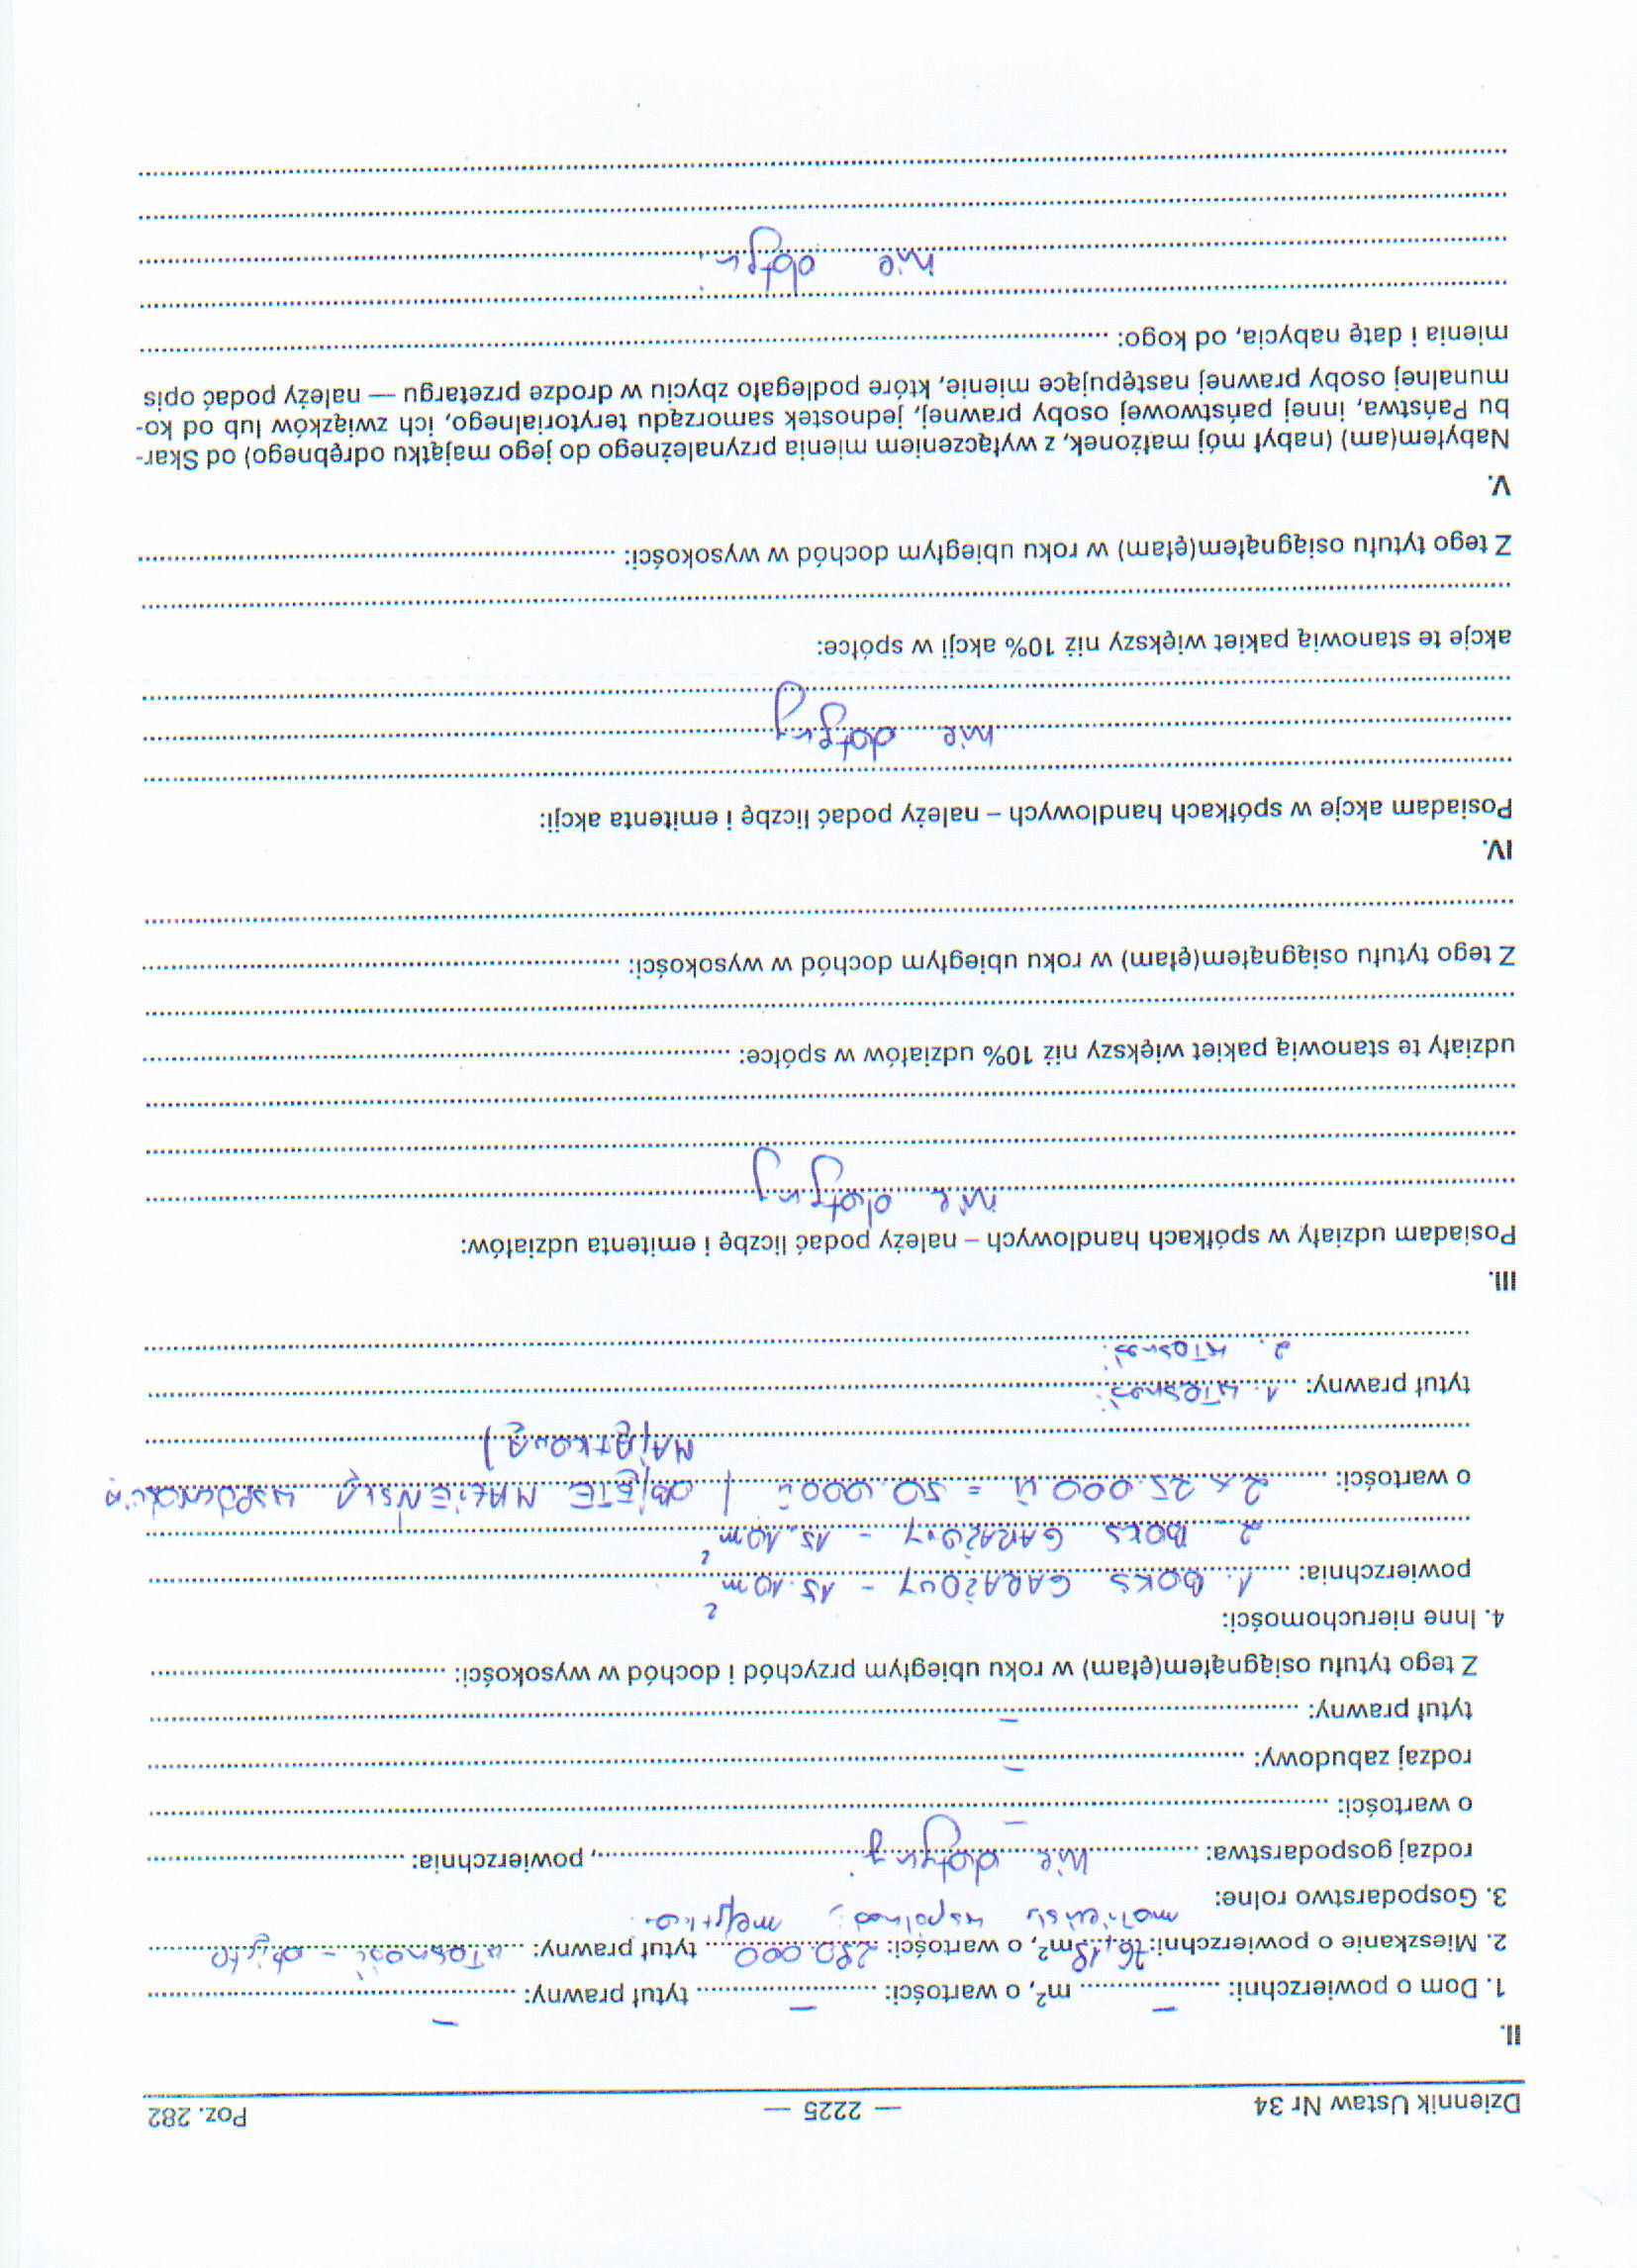 Dziennik Ustaw Nr 34 — 2225 — Poz. 282
II.
1. Dom o powierzchni: ..... – ..... m², o wartości: ..... – ..... tytuł prawny: ..... – .....
2. Mieszkanie o powierzchni: 76,18 m², o wartości: 280.000 tytuł prawny: własność – objęte
małżeńską wspólnością majątkową
3. Gospodarstwo rolne:
rodzaj gospodarstwa: nie dotyczy, powierzchnia: .....
o wartości: ..... – .....
rodzaj zabudowy: ..... – .....
tytuł prawny: ..... – .....
Z tego tytułu osiągnąłem(ęłam) w roku ubiegłym przychód i dochód w wysokości: .....
4. Inne nieruchomości:
powierzchnia: 1. BOKS GARAŻOWY – 15.10 m²
2. BOKS GARAŻOWY – 15.10 m²
o wartości: 2 x 25.000 zł = 50.000 zł ( OBJĘTE MAŁŻEŃSKĄ WSPÓLNOŚCIĄ
MAJĄTKOWĄ )
tytuł prawny: 1. własność
2. własność
III.
Posiadam udziały w spółkach handlowych – należy podać liczbę i emitenta udziałów:
nie dotyczy
udziały te stanowią pakiet większy niż 10% udziałów w spółce: .....
Z tego tytułu osiągnąłem(ęłam) w roku ubiegłym dochód w wysokości: .....
IV.
Posiadam akcje w spółkach handlowych – należy podać liczbę i emitenta akcji:
nie dotyczy
akcje te stanowią pakiet większy niż 10% akcji w spółce:
Z tego tytułu osiągnąłem(ęłam) w roku ubiegłym dochód w wysokości: .....
V.
Nabyłem(am) (nabył mój małżonek, z wyłączeniem mienia przynależnego do jego majątku odrębnego) od Skar-
bu Państwa, innej państwowej osoby prawnej, jednostek samorządu terytorialnego, ich związków lub od ko-
munalnej osoby prawnej następujące mienie, które podlegało zbyciu w drodze przetargu — należy podać opis
mienia i datę nabycia, od kogo: .....
nie dotyczy